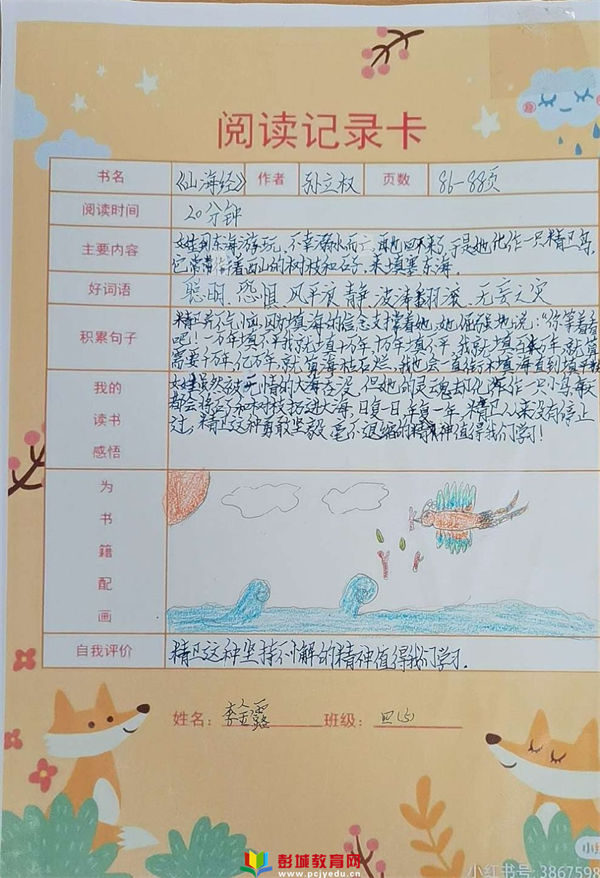 阅读记录卡
书名 《山海经》 作者 孙立权 页数 86-88页
阅读时间 20分钟
主要内容 女娃到东海游玩,不幸溺水而亡,再也回不来了,于是她化作一只精卫鸟,
它常常衔着西山的树枝和石子,来填塞东海.
好词语 聪明、恐惧、风平浪静、波涛翻滚、无妄之灾
积累句子 精卫并不气恼,因为填海的信念支撑着她,她倔强地说:“你等着看
吧!一万年填不平我就填十万年,十万年填不平,我就填 万年,就算
需要千万年亿万年,就算海枯石烂,我也会一直衔木填海,直到填平
我的读书感悟 女娃虽然被无情的大海吞没,但她的灵魂却化作一只小鸟,每天
都会将石子和树枝扔进大海,日复一日,年复一年,精卫从来没有停止
过,精卫这种勇敢坚毅、毫不退缩的精神值得我们学习!
为书籍配画
自我评价 精卫这种坚持不懈的精神值得我们学习.
姓名: 李金露 班级: 四
彭城教育网
www.pcjyedu.cn
小红书号:3867598